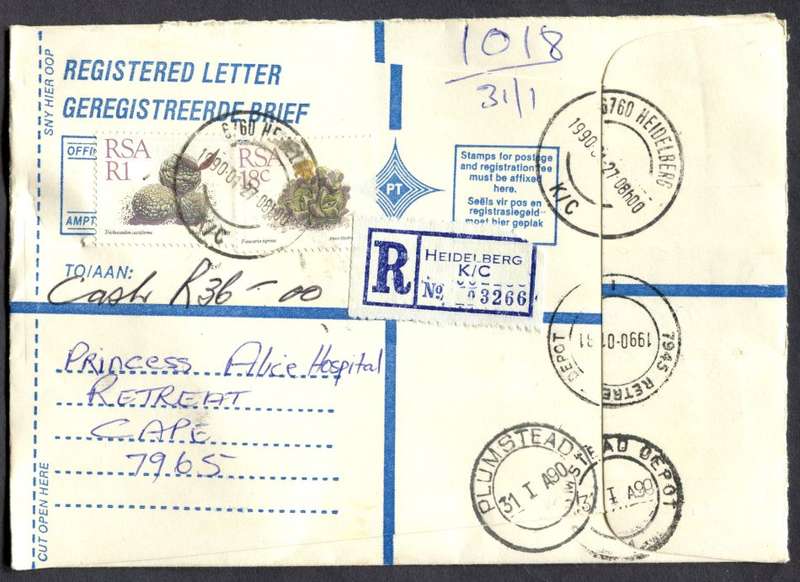 SNY HIER OOP
REGISTERED LETTER
GEREGISTREERDE BRIEF
1018
31/1
OFFI
AMPT
RSA
R1
RSA
18c
6760 HEI
1990-01-27 08h00
K/C
PT
Stamps for postage
and registration fee
must be affixed
here.
Seëls vir pos en
registrasiegeld
moet hier geplak
6760 HEIDELBERG
1990-01-27 08h00
K/C
TO/AAN:
Cash R36-00
R
HEIDELBERG
K/C
No. 3266
Princess Alice Hospital
RETREAT
CAPE
7965
7945 RETRE
1990-01-31
DEPOT
PLUMSTEAD
31 I A90
AD DEPOT
I A90
CUT OPEN HERE